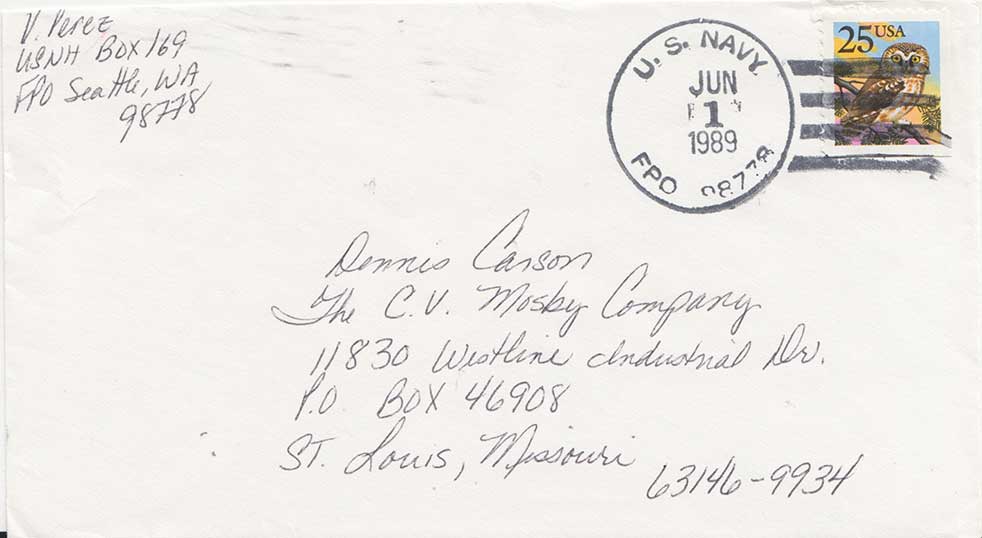 V. Perez
USNH Box 169
FPO Seattle, WA
98778
U.S. NAVY
JUN
1
1989
FPO 98778
25 USA
Dennis Carson
The C.V. Mosby Company
11830 Westline Industrial Dr.
P.O Box 46908
ST. Louis, Missouri
63146-9934